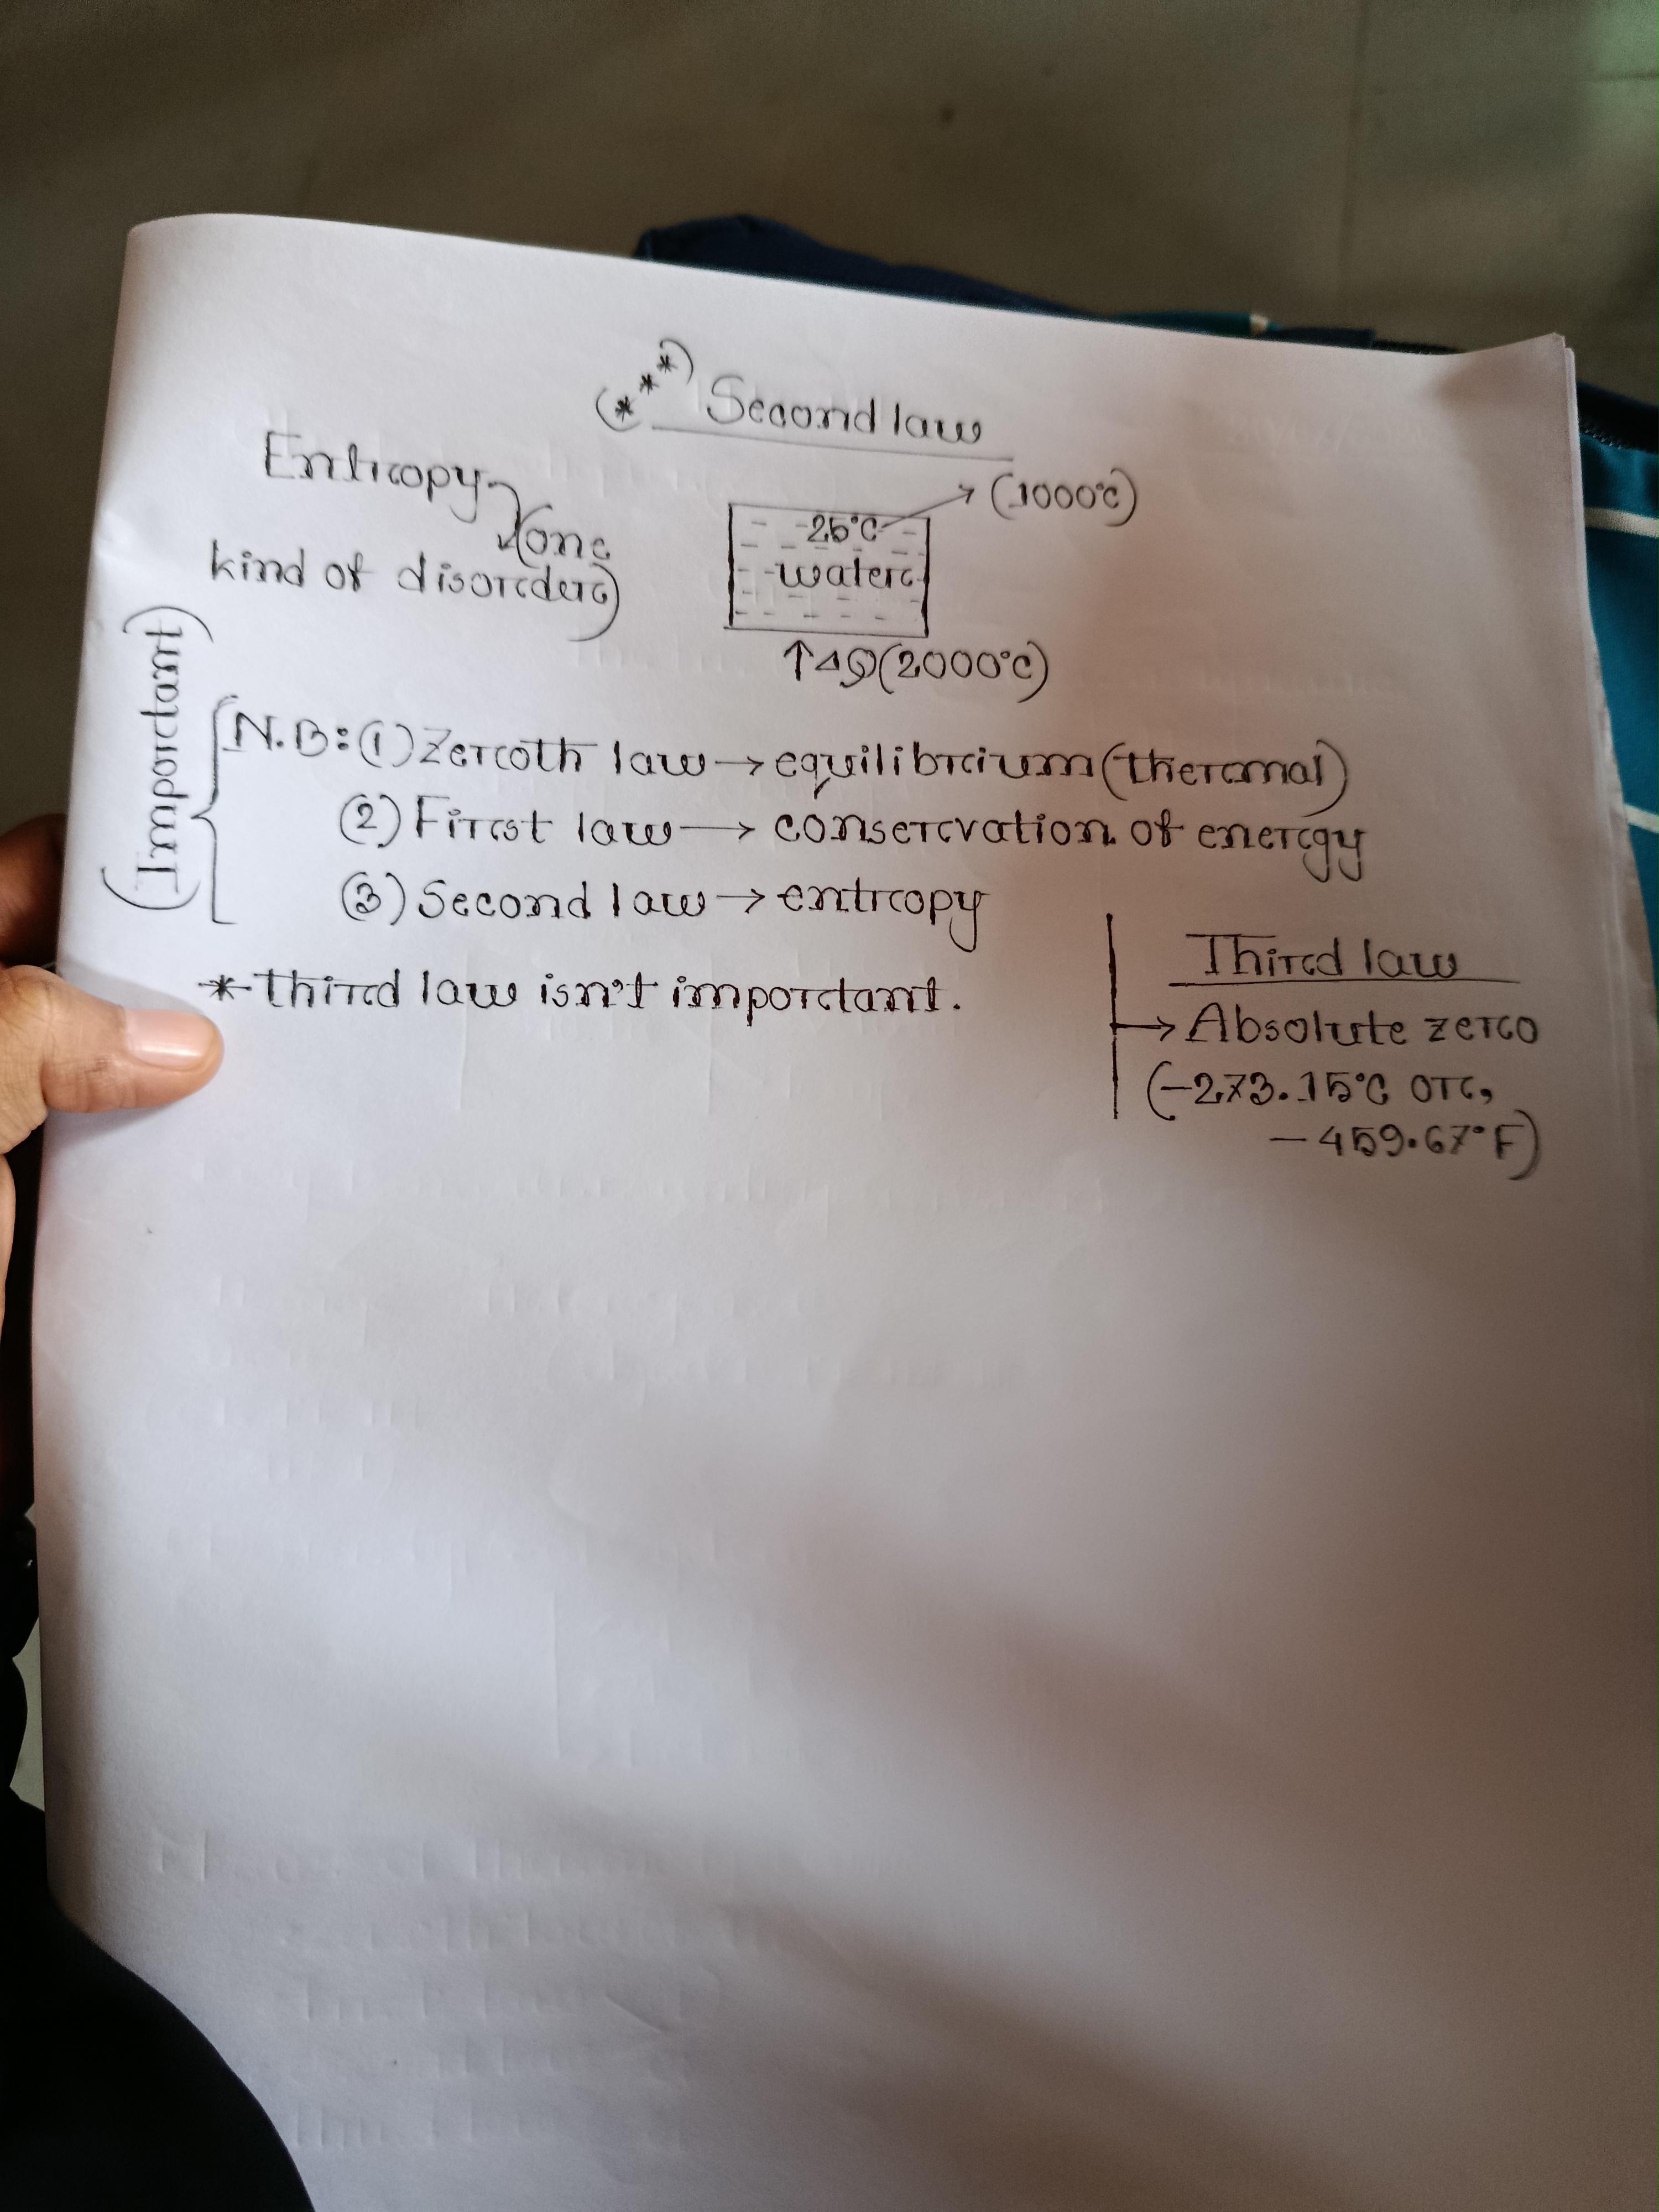 (***) Second law
Entropy
(one
kind of disorder)
25°C
(1000°C)
water
↑ΔQ(2000°C)
(Important)
N.B: (1) Zeroth law → equilibrium (thermal)
(2) First law → conservation of energy
(3) Second law → entropy
* Third law isn't important.
Third law
→ Absolute zero
(-273.15°C or,
-459.67°F)